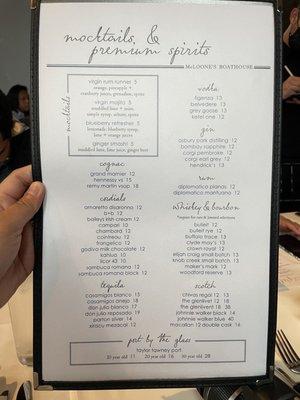 mocktails, &
premium spirits
McLOONE'S BOATHOUSE
mocktails
virgin rum runner 5
orange, pineapple +
cranberry juices, grenadine, sprite
virgin mojito 5
muddled lime + mint,
simple syrup, seltzer, sprite
blueberry refresher 5
lemonade, blueberry syrup,
lime + orange juices
ginger smash 5
muddled lime, lime juice, ginger beer
cognac
grand marnier 12
hennessy vs 15
remy martin vsop 18
cordials
amaretto disaronno 12
b+b 12
baileys irish cream 12
campari 10
chambord 12
cointreau 12
frangelico 12
godiva milk chocolate 12
kahlua 10
licor 43 10
sambuca romana 12
sambuca romana black 12
tequila
casamigos blanco 13
casamigos anejo 18
don julio blanco 17
don julio reposado 19
patron silver 14
xiracu mezcal 12
vodka
figenza 13
belvedere 13
grey goose 13
ketel one 12
gin
asbury park distilling 12
bombay sapphire 12
corgi pembroke 12
corgi earl grey 12
hendrick's 13
rum
diplomatico planas 12
diplomatico mantuano 12
whiskey & bourbon
bulleit 12
bulleit rye 12
buffalo trace 13
clyde may's 13
crown royal 12
elijah craig small batch 13
knob creek small batch 13
maker's mark 12
woodford reserve 13
scotch
chivas regal 12 13
the glenlivet 12 18
the glenlivet 18 38
johnnie walker black 14
johnnie walker blue 40
macallan 12 double cask 16
port by the glass
taylor tawney port
10 year old 11 20 year old 16 30 year old 28